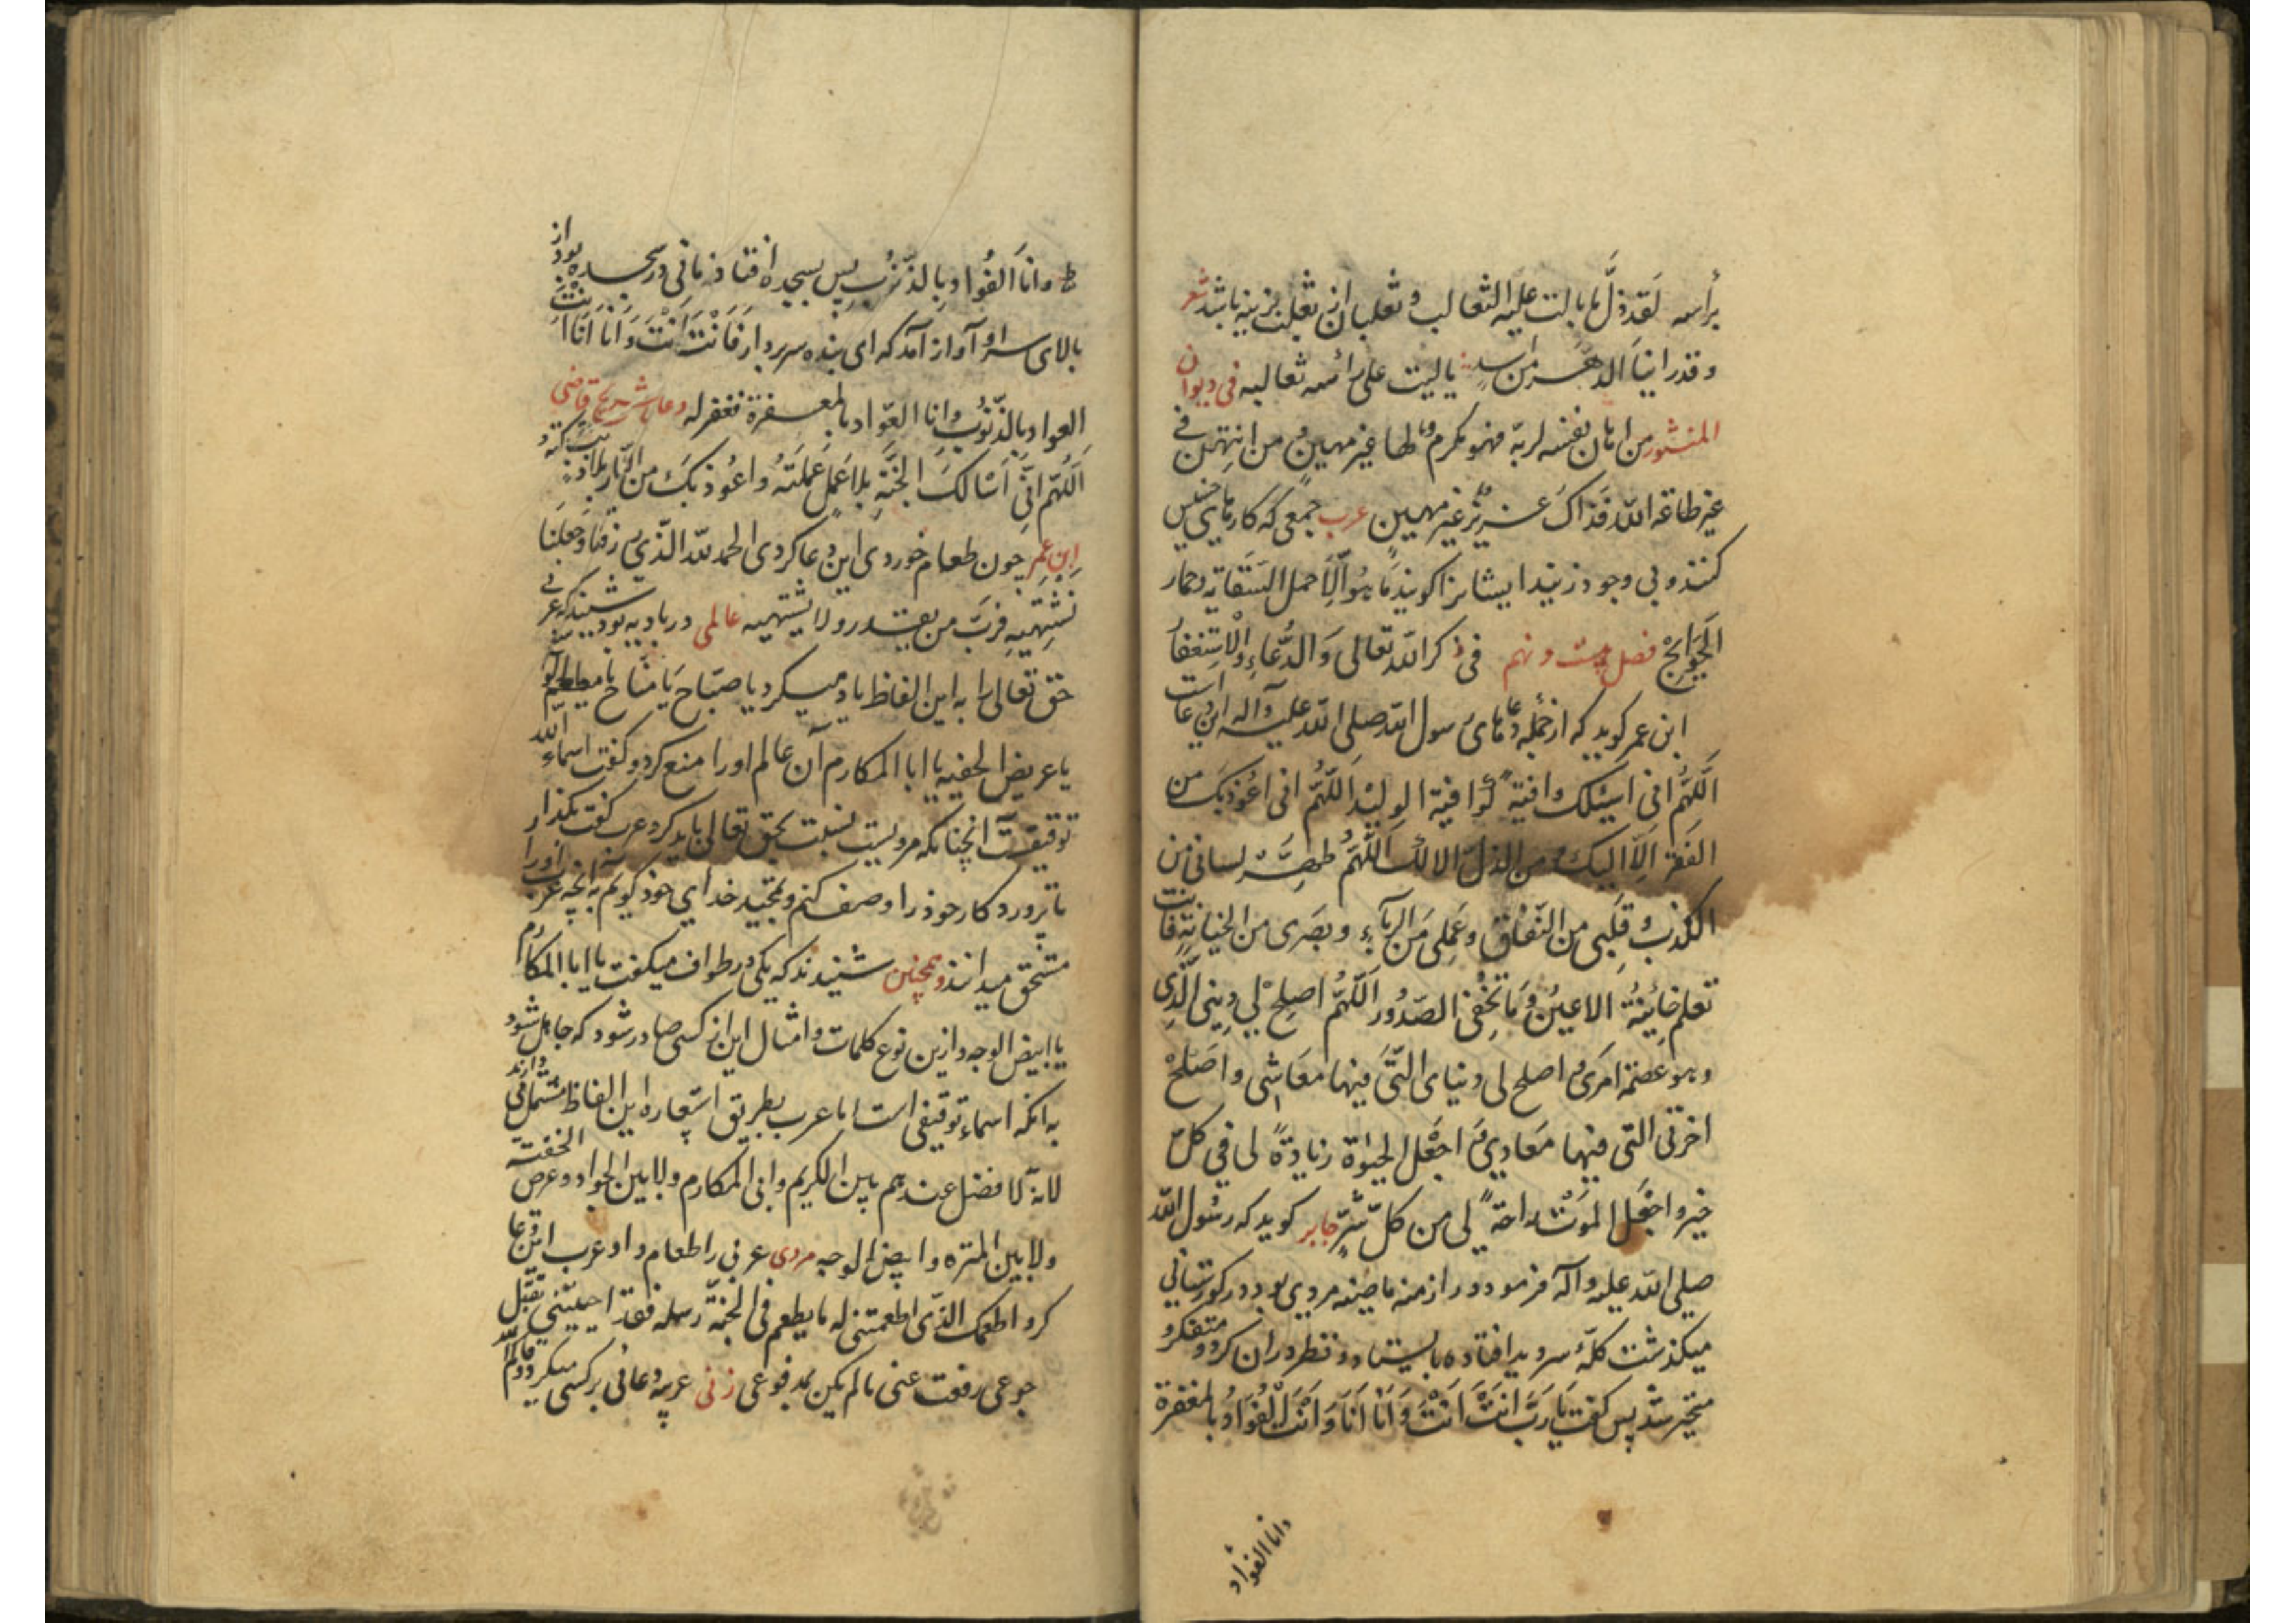 برأسه لقد ذل ما بالت علیه الثعالب و ثعلبان از ثعلب نرینه باشد شعر
و قد راینا الدهر من اسد یالیت علی رأسه ثعالبه فی دیوان
المنثور من اهان نفسه لربه فهو مکرم لها غیر مهین و من امتهن فی
غیر طاعة الله فذاک عزیز غیر مهین عرب جمعی که کارهای خسیس
کنند و بی وجود زیند ایشانرا کویند ما هو الا حمل السقایه و حمار
الحوایج فصل بیست و نهم فی ذکر الله تعالی و الدعاء و الاستغفار
ابن عمر کوید که از جمله دعاهای رسول الله صلی الله علیه و آله این دعاست
اللهم انی اسئلک واقیة کواقیة الولید اللهم انی اعوذ بک من
الفقر الا الیک و من الذل الا لک اللهم طهر لسانی من
الکذب و قلبی من النفاق و عملی من الریاء و بصری من الخیانة فانت
تعلم خائنة الاعین و ما تخفی الصدور اللهم اصلح لی دینی الذی
و هو عصمة امری و اصلح لی دنیای التی فیها معاشی و اصلح
اخرتی التی فیها معادی و اجعل الحیوة زیادة لی فی کل
خیر و اجعل الموت راحة لی من کل شر جابر کوید که رسول الله
صلی الله علیه و آله فرمود در ازمنه ماضیه مردی بود در کورستانی
میکذشت کله سر دید افتاده بایستاد و نظر در ان کرد و متفکر و
متحیر شد پس کفت یا رب انت انت و انا انا و انت العواد بالمغفرة
وانا العواد
و انا العواد بالذنوب پس بسجده افتاد زمانی در سجده بود از
بالای سر او آواز آمد که ای بنده سر بردار فانت انت و انا انا انت
العواد بالذنوب و انا العواد بالمغفرة فغفر له دعا شریح قاضی
اللهم انی اسالک الجنة بلا عمل عملته و اعوذ بک من النار بلا ذنب ترکته
ابن عمر چون طعام خوردی این دعا کردی الحمد لله الذی رزقنا و جعلنا
نشتهیه فرب من یقدر و لا یشتهیه عالمی در بادیه بود شنید که عربی
حق تعالی را به این الفاظ یاد میکرد یا صباح یا مناح یا مطعم
یا عریض الجفنه یا ابا المکارم آن عالم او را منع کرد و کفت اسماء الله
توقیفیست آنچنانکه مرویست نسبت بحق تعالی باید کرد عرب کفت بکذار
تا پروردکار خود را وصف کنم و تمجید خدای خود کویم به آنچه عرب او را
مستحق میدانند و همچنین شنیدند که یکی در طواف میکفت یا ابا المکارم
یا ابیض الوجه و ازین نوع کلمات و امثال این از کسی صادر شود که جاهل شود
به انکه اسماء توقیفی است اما عرب بطریق استعاره این الفاظ مستعمل دارند
لانه لا فضل عندهم بین الکریم و ابی المکارم و لا بین الجواد و عرض الجفنه
و لا بین المنزه و ابیض الوجه مردی عربی را طعام داد عرب این دعا
کرد اطعمک الذی اطعمتنی له ما یطعم فی الجنة رسله فقد احییتنی بقتل
جوعی و رفعت عنی ما لم یکن بمدفوعی زنی عربیه دعائی بر کسی میکرد و قالت